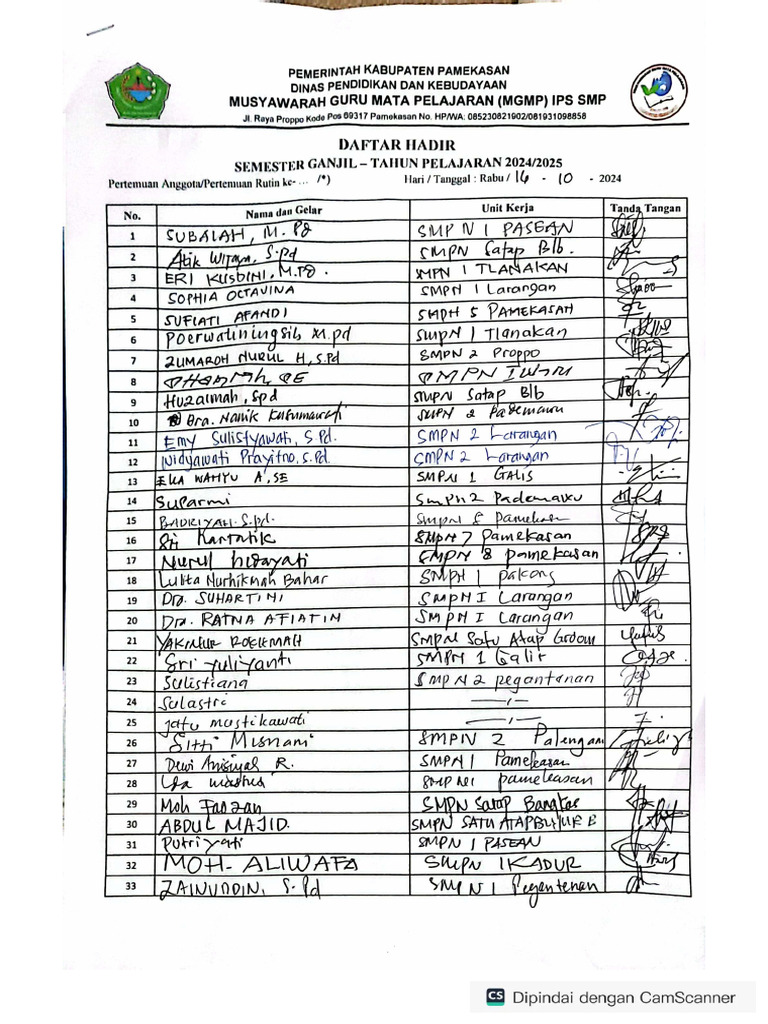 PEMERINTAH KABUPATEN PAMEKASAN
DINAS PENDIDIKAN DAN KEBUDAYAAN
MUSYAWARAH GURU MATA PELAJARAN (MGMP) IPS SMP
Jl. Raya Proppo Kode Pos 69317 Pamekasan No. HP/WA: 085230821902/081931098858
DAFTAR HADIR
SEMESTER GANJIL – TAHUN PELAJARAN 2024/2025
Pertemuan Anggota/Pertemuan Rutin ke- ... /*) Hari / Tanggal : Rabu / 16 - 10 - 2024
No. Nama dan Gelar Unit Kerja Tanda Tangan
1 SUBALAH, M.Pd SMP N 1 PASEAN
2 Atik Wijaya, S.pd SMPN Satap Blb.
3 ERI KUSDINI, M.Pd. SMPN 1 TLANAKAN
4 SOPHIA OCTAVINA SMPN 1 Larangan
5 SUFIATI AFANDI SMPN 5 PAMEKASAN
6 Poerwatiningsih M.pd SMPN 1 Tlanakan
7 ZUMAROH NURUL H, S.Pd SMPN 2 Proppo
8 SMPN 1
9 Huzaimah, Spd SMPN Satap Blb
10 Dra. Nanik Kusumawati SMPN 2 Pademawu
11 Emy Sulistyawati, S.Pd. SMPN 2 Larangan
12 Widyawati Prayitno, S.Pd. SMPN 2 Larangan
13 EKA WAHYU A, SE SMPN 1 GALIS
14 Suparmi SMPN 2 Pademawu
15 BADRIYAH. S.pd. SMPN 8 Pamekasan
16 Sri Kartatik SMPN 7 Pamekasan
17 Nurul hidayati SMPN 8 pamekasan
18 Lulita Nurhikmah Bahar SMPN 1 pakong
19 Dra. SUHARTINI SMPN I Larangan
20 Dra. RATNA AFIATIN SMPN I Larangan
21 YAKINUR ROEKEMAH SMPN Satu Atap
22 Sri yuliyanti SMPN 1 Galis
23 Sulistiana SMPN 2 pegantenan
24 Sulastri —〃—
25 jatu mustikawati —〃—
26 Sitti Misnani SMPN 2 Palengaan
27 Dewi R. SMPN 1 Pamekasan
28 SMPN 1 pamekasan
29 Moh Fauzan SMPN Satap
30 ABDUL MAJID. SMPN SATU ATAP
31 Putri yati SMPN 1 PASEAN
32 MOH. ALIWAFA SMPN 1 KADUR
33 ZAINUDDIN, S.Pd SMPN 1 Pegantenan
CS Dipindai dengan CamScanner